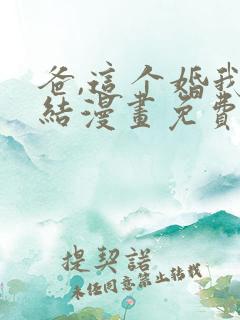 爸,这个婚我
結漫畫免費
提契諾
未经同意禁止转载